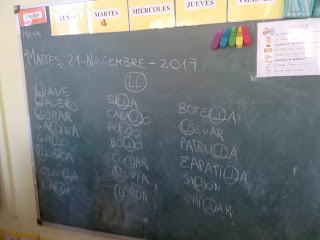 LUNES
MARTES
MIÉRCOLES
JUEVES
VIERNES
MARTES, 21-NOVIEMBRE-2017
LL
LLAVE
LLAVERO
LLORAR
GALLINA
GALLO
SILLA
CABALLO
POLLO
BOLLO
LLUVIA
LLORÓN
BOTELLA
LLEVAR
PATRULLA
ZAPATILLA
SILLÓN
CHILLAR